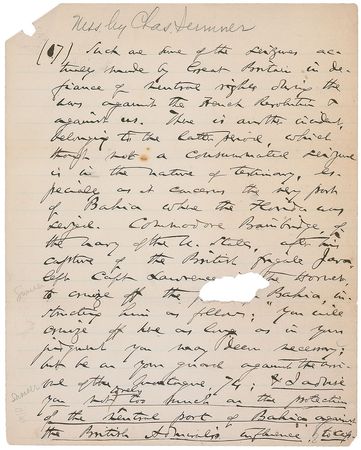 Mss by Chas. Sumner
(17) Such are some of the seizures ac-
tually made by Great Britain in de-
fiance of neutral rights during the
wars against the French Revolution &
against us. There is another incident,
belonging to the latter period, which
though not a consummated seizure
is in the nature of testimony, es-
pecially as it concerns the very port
of Bahia where the Florida was
seized. Commodore Bainbridge, of
the navy of the U. States, after the
capture of the British frigate Java
left Capt Lawrence the Hornet
to cruize off the Bahia, in-
structing him as follows; "You will
cruize off here as long as in your
judgment you may deem necessary;
but be on your guard against the arri-
val of the Montague, 74; & I advise
you not to rely too much on the protection
of the neutral port of Bahia against
the British Admiral's influence
Sumner